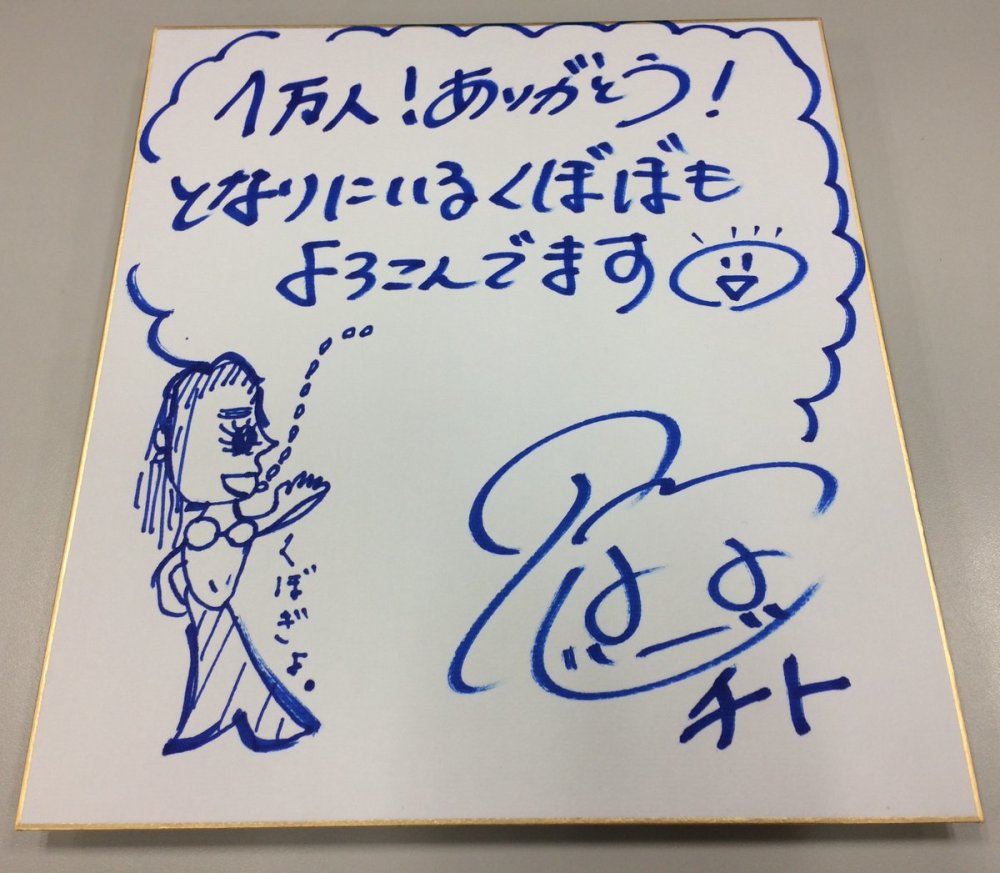 1万人!ありがとう!
となりにいるくぼぼも
よろこんでます
くぼぎょ。
チト